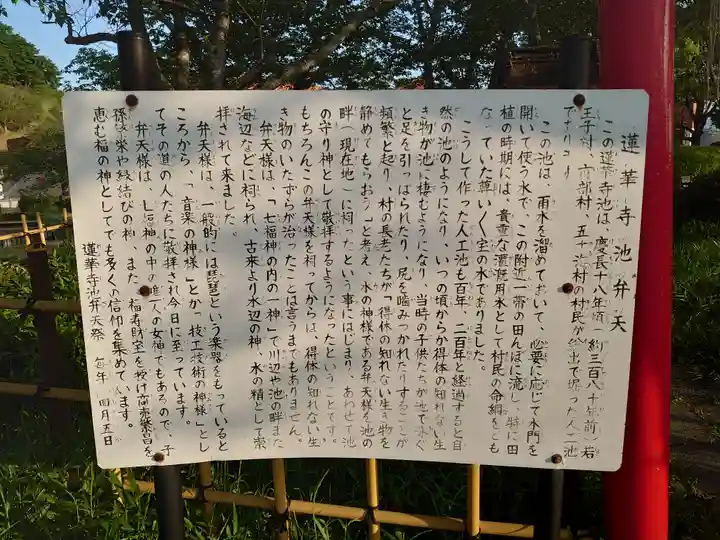 蓮華寺池弁天
この蓮華寺池は、慶長十八年頃(約三百八十年前)若
王子村、市部村、五十海村の村民が総出で掘った人工池
であります。
この池は、雨水を溜めておいて、必要に応じて水門を
開いて使う水で、この附近一帯の田んぼに流し、特に田
植の時期には、貴重な灌漑用水として村民の命綱とも
なっていた尊い〱宝の水でありました。
こうして作った人工池も百年、二百年と経過すると自
然の池のようになり、いつの頃からか得体の知れない生
き物が池に棲むようになり、当時の子供たちが池で泳ぐ
と足を引っぱられたり、尻を噛みつかれたりすることが
頻繁と起り、村の長老たちが「得体の知れない生き物を
静めてもらおう」と考え、水の神様である弁天様を池の
畔(現在地)に祠ったという事にはじまり、あわせて池
の守り神として敬拝するようになったということです。
もちろんこの弁天様を祠ってからは、得体の知れない生
き物のいたずらが治ったことは言うまでもありません。
弁天様は、「七福神の内の一神」で川辺や池の畔また
海辺などに祠られ、古来より水辺の神、水の精として崇
拝されて来ました。
弁天様は、一般的には琵琶という楽器をもっていると
ころから、「音楽の神様」とか「技工技術の神様」とし
てその道の人たちに敬拝され今日に至っています。
弁天様は、七福神の中の唯一人の女神でもあるので、子
孫繁栄や縁結びの神、また、福寿財宝を授け商売繁昌を
恵む福の神としてでも多くの信仰を集めています。
蓮華寺池弁天祭 毎年 四月五日